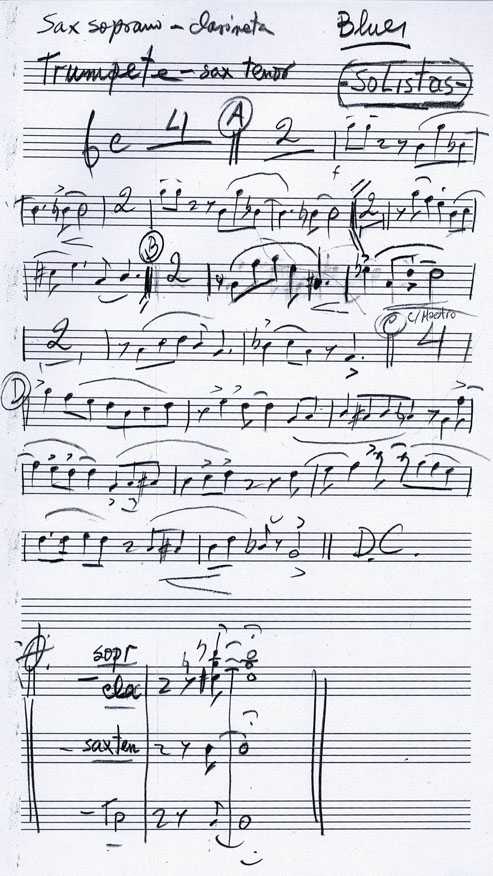 Sax soprano - clarineta Blues
Trumpete - sax tenor -Solistas-
C 4 A 2
f
2 2
B 2
2 C c/Maestro 4
D
D.C.
sopr
cla
- saxten
- Tp